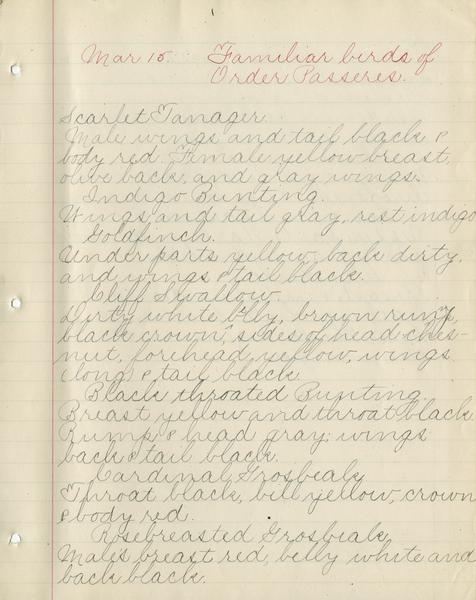 Mar 15 Familiar birds of
Order Passeres.
Scarlet Tanager.
Male wings and tail black &
body red. Female yellow breast,
olive back, and gray wings.
Indigo Bunting.
Wings and tail gray, rest indigo
Goldfinch.
Under parts yellow, back dirty,
and wings & tail black.
Cliff Swallow
Dirty white belly, brown rump,
black crown, sides of head ches-
nut, forehead yellow, wings
(long) & tail black.
Black throated Bunting
Breast yellow and throat black.
Rump & head gray; wings
back & tail black.
Cardinal Grosbeak
Throat black, bill yellow, crown
& body red.
Rosebreasted Grosbeak,
Male's breast red, belly white and
back black.